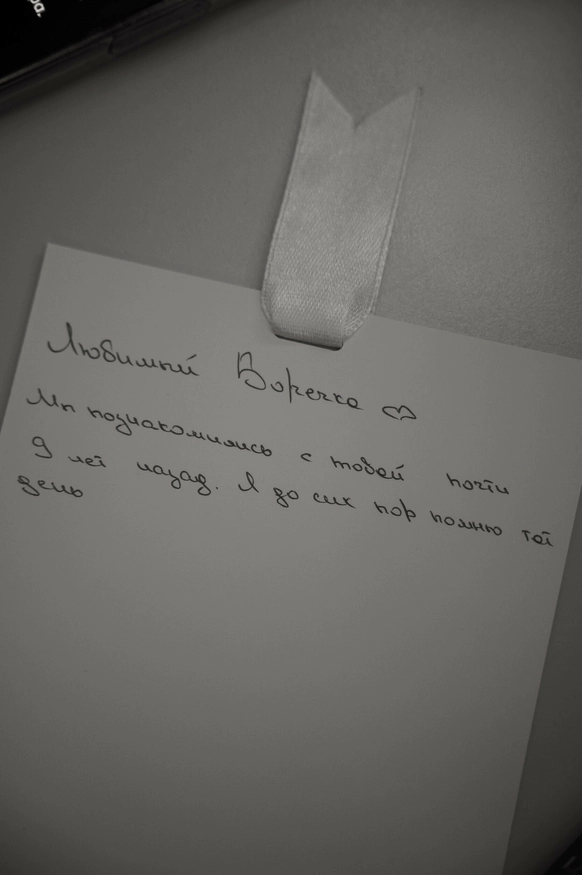 Любимый Боречка ♡
Мы познакомились с тобой почти
9 лет назад. Я до сих пор помню тот
день